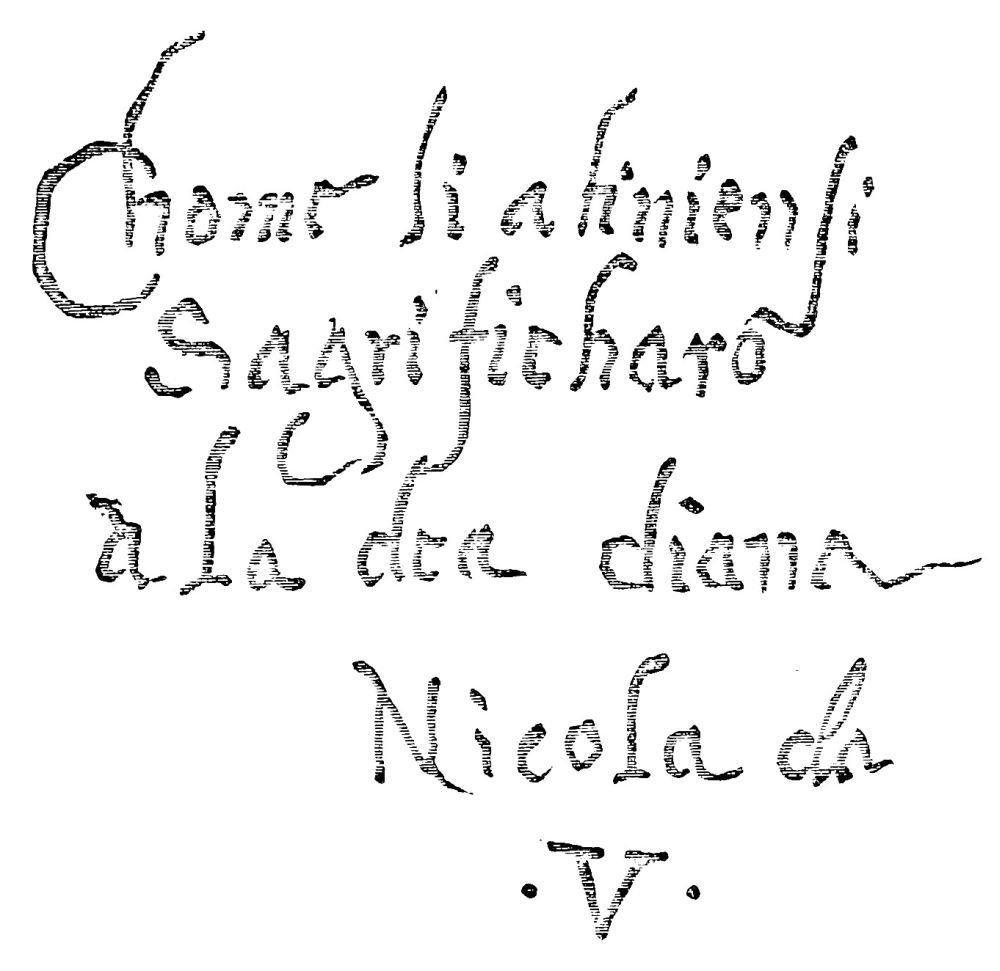 Chome li atiniensi
Sagrificharo
à la dea diana
Nicola da
. V .